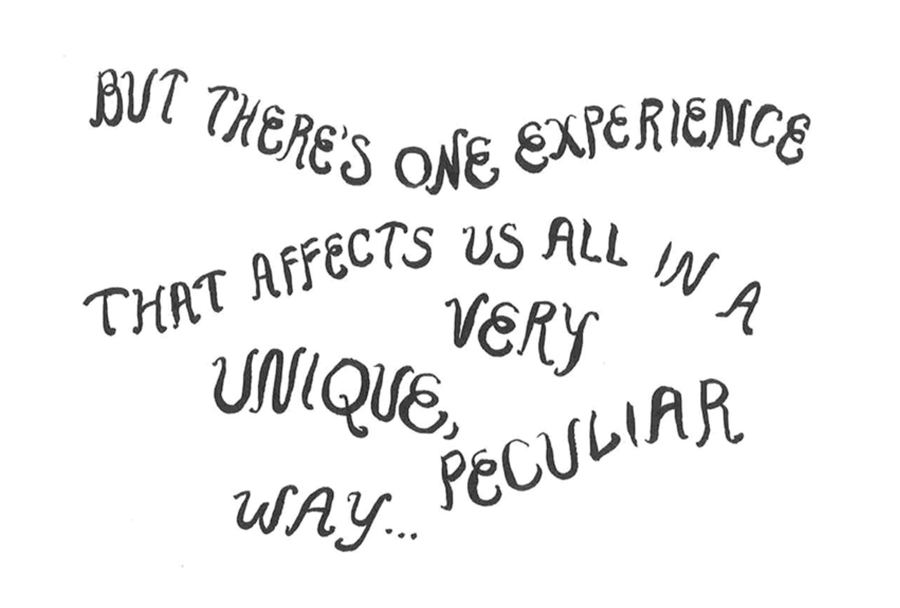 BUT THERE'S ONE EXPERIENCE
THAT AFFECTS US ALL IN A
VERY
UNIQUE,
PECULIAR
WAY...